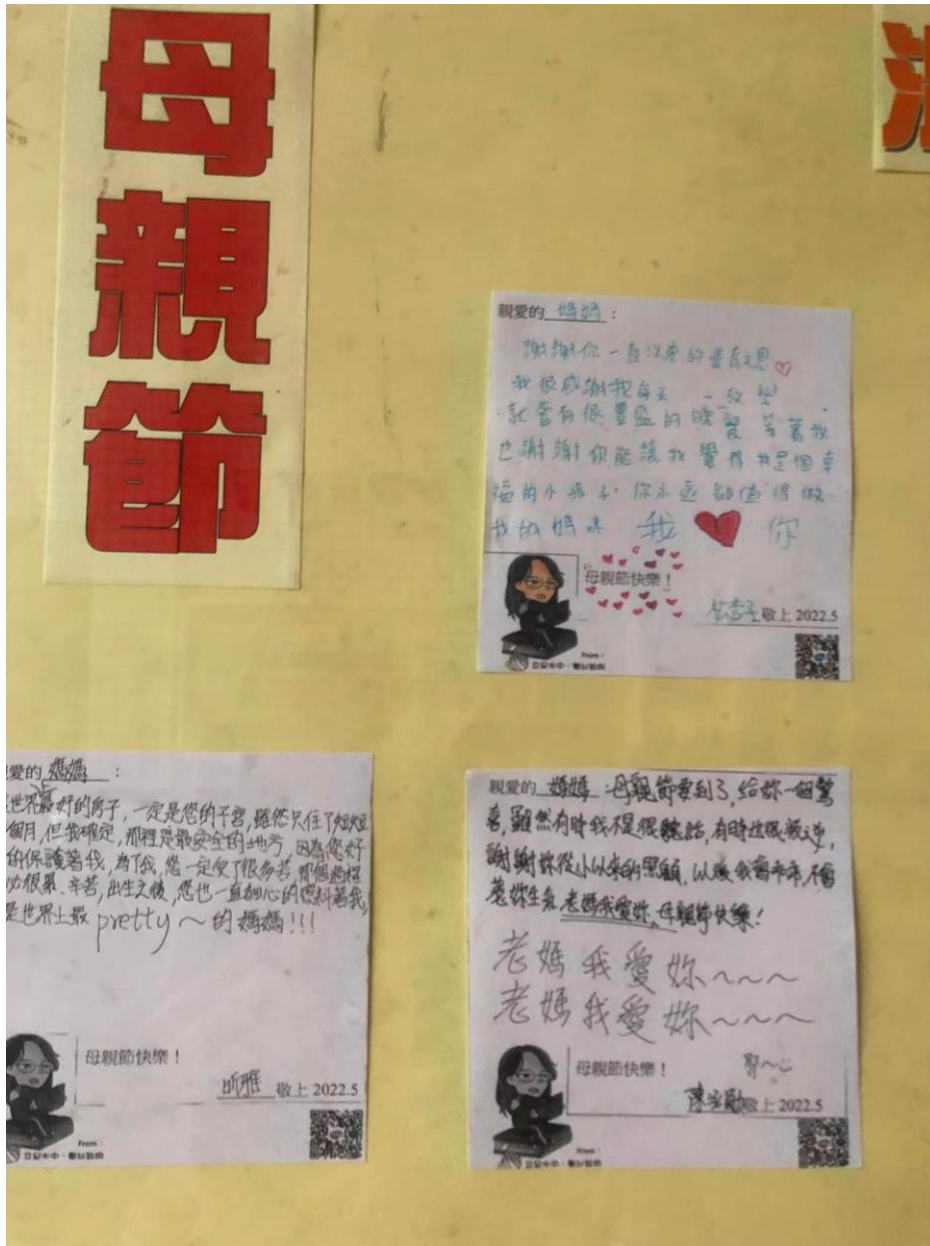 母親節
親愛的 媽媽 :
謝謝你一直以來的養育之恩
我很感謝我每天 一放學
就會有很豐盛的晚餐等著我
也謝謝你能讓我覺得我是個幸
福的小孩子,你永遠都值得做
我的媽咪 我 你
母親節快樂!
敬上 2022.5
From:
愛的 媽媽 :
世界最好的房子,一定是您的子宮,雖然只住了短短
個月,但我確定,那裡是最安全的地方,因為您好
的保護著我,為了我,您一定受了很多苦,那個過程
必很累、辛苦,出生之後,您也一直細心的照料著我,
是世界上最 pretty~的媽媽!!!
母親節快樂!
昕雅 敬上 2022.5
From:
親愛的 媽媽 母親節要到了,給妳一個驚
喜,雖然有時我不是很聽話,有時也很叛逆,
謝謝妳從小以來的照顧,以後我會乖乖,不會
惹妳生氣,老媽我愛妳,母親節快樂!
老媽我愛妳~~~
老媽我愛妳~~~
母親節快樂!
陳 敬上 2022.5
From: